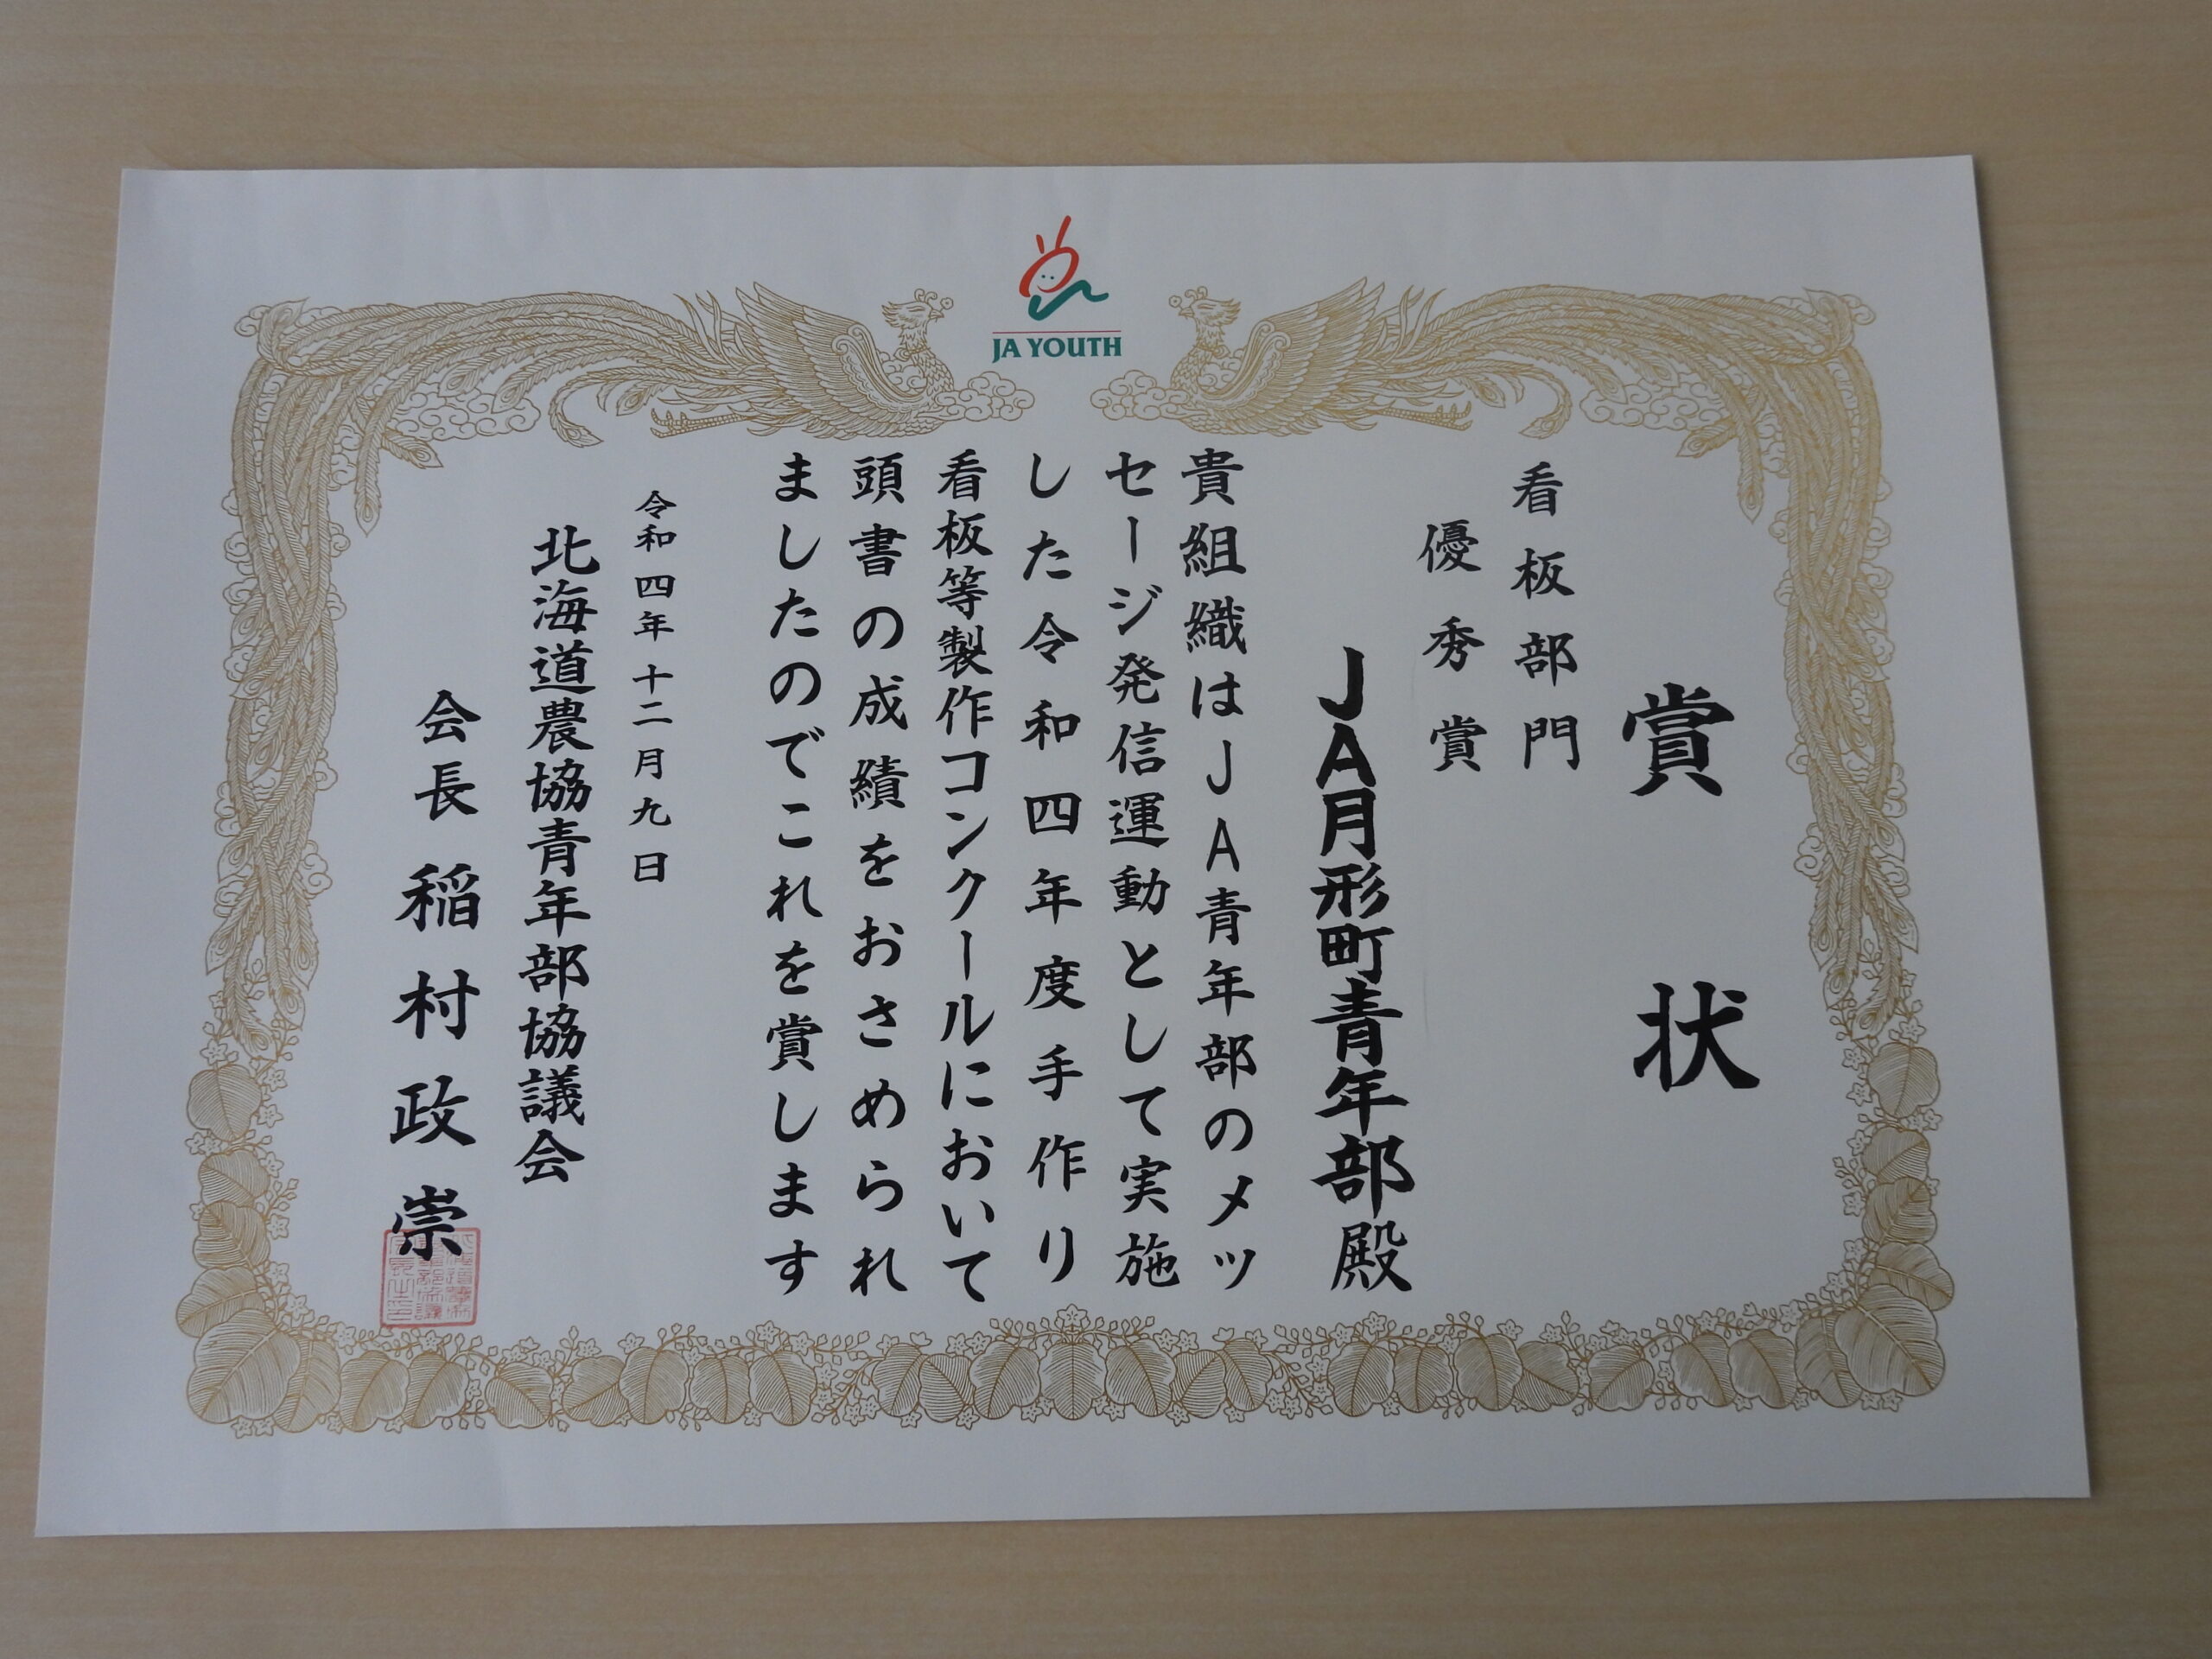 JA YOUTH
賞状
看板部門
優秀賞
JA月形町青年部殿
貴組織はJA青年部のメッ
セージ発信運動として実施
した令和四年度手作り
看板等製作コンクールにおいて
頭書の成績をおさめられ
ましたのでこれを賞します
令和四年十二月九日
北海道農協青年部協議会
会長稲村政崇